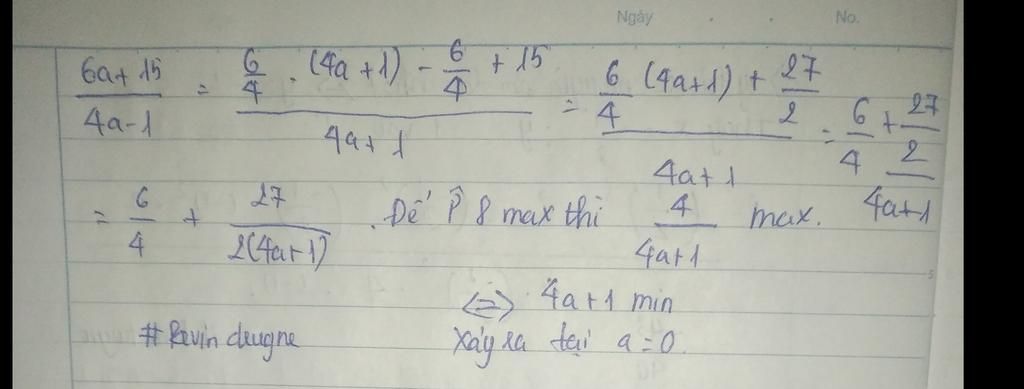 Ngày . . No.
(6a + 15)/(4a - 1) = (6/4 . (4a + 1) - 6/4 + 15)/(4a + 1) = (6/4 (4a+1) + 27/2)/(4a+1) = 6/4 + (27/2)/(4a+1)
= 6/4 + 27/(2(4a+1)) . Để P 8 max thì 4/(4a+1) max.
<=> 4a+1 min
Xảy ra tại a=0.